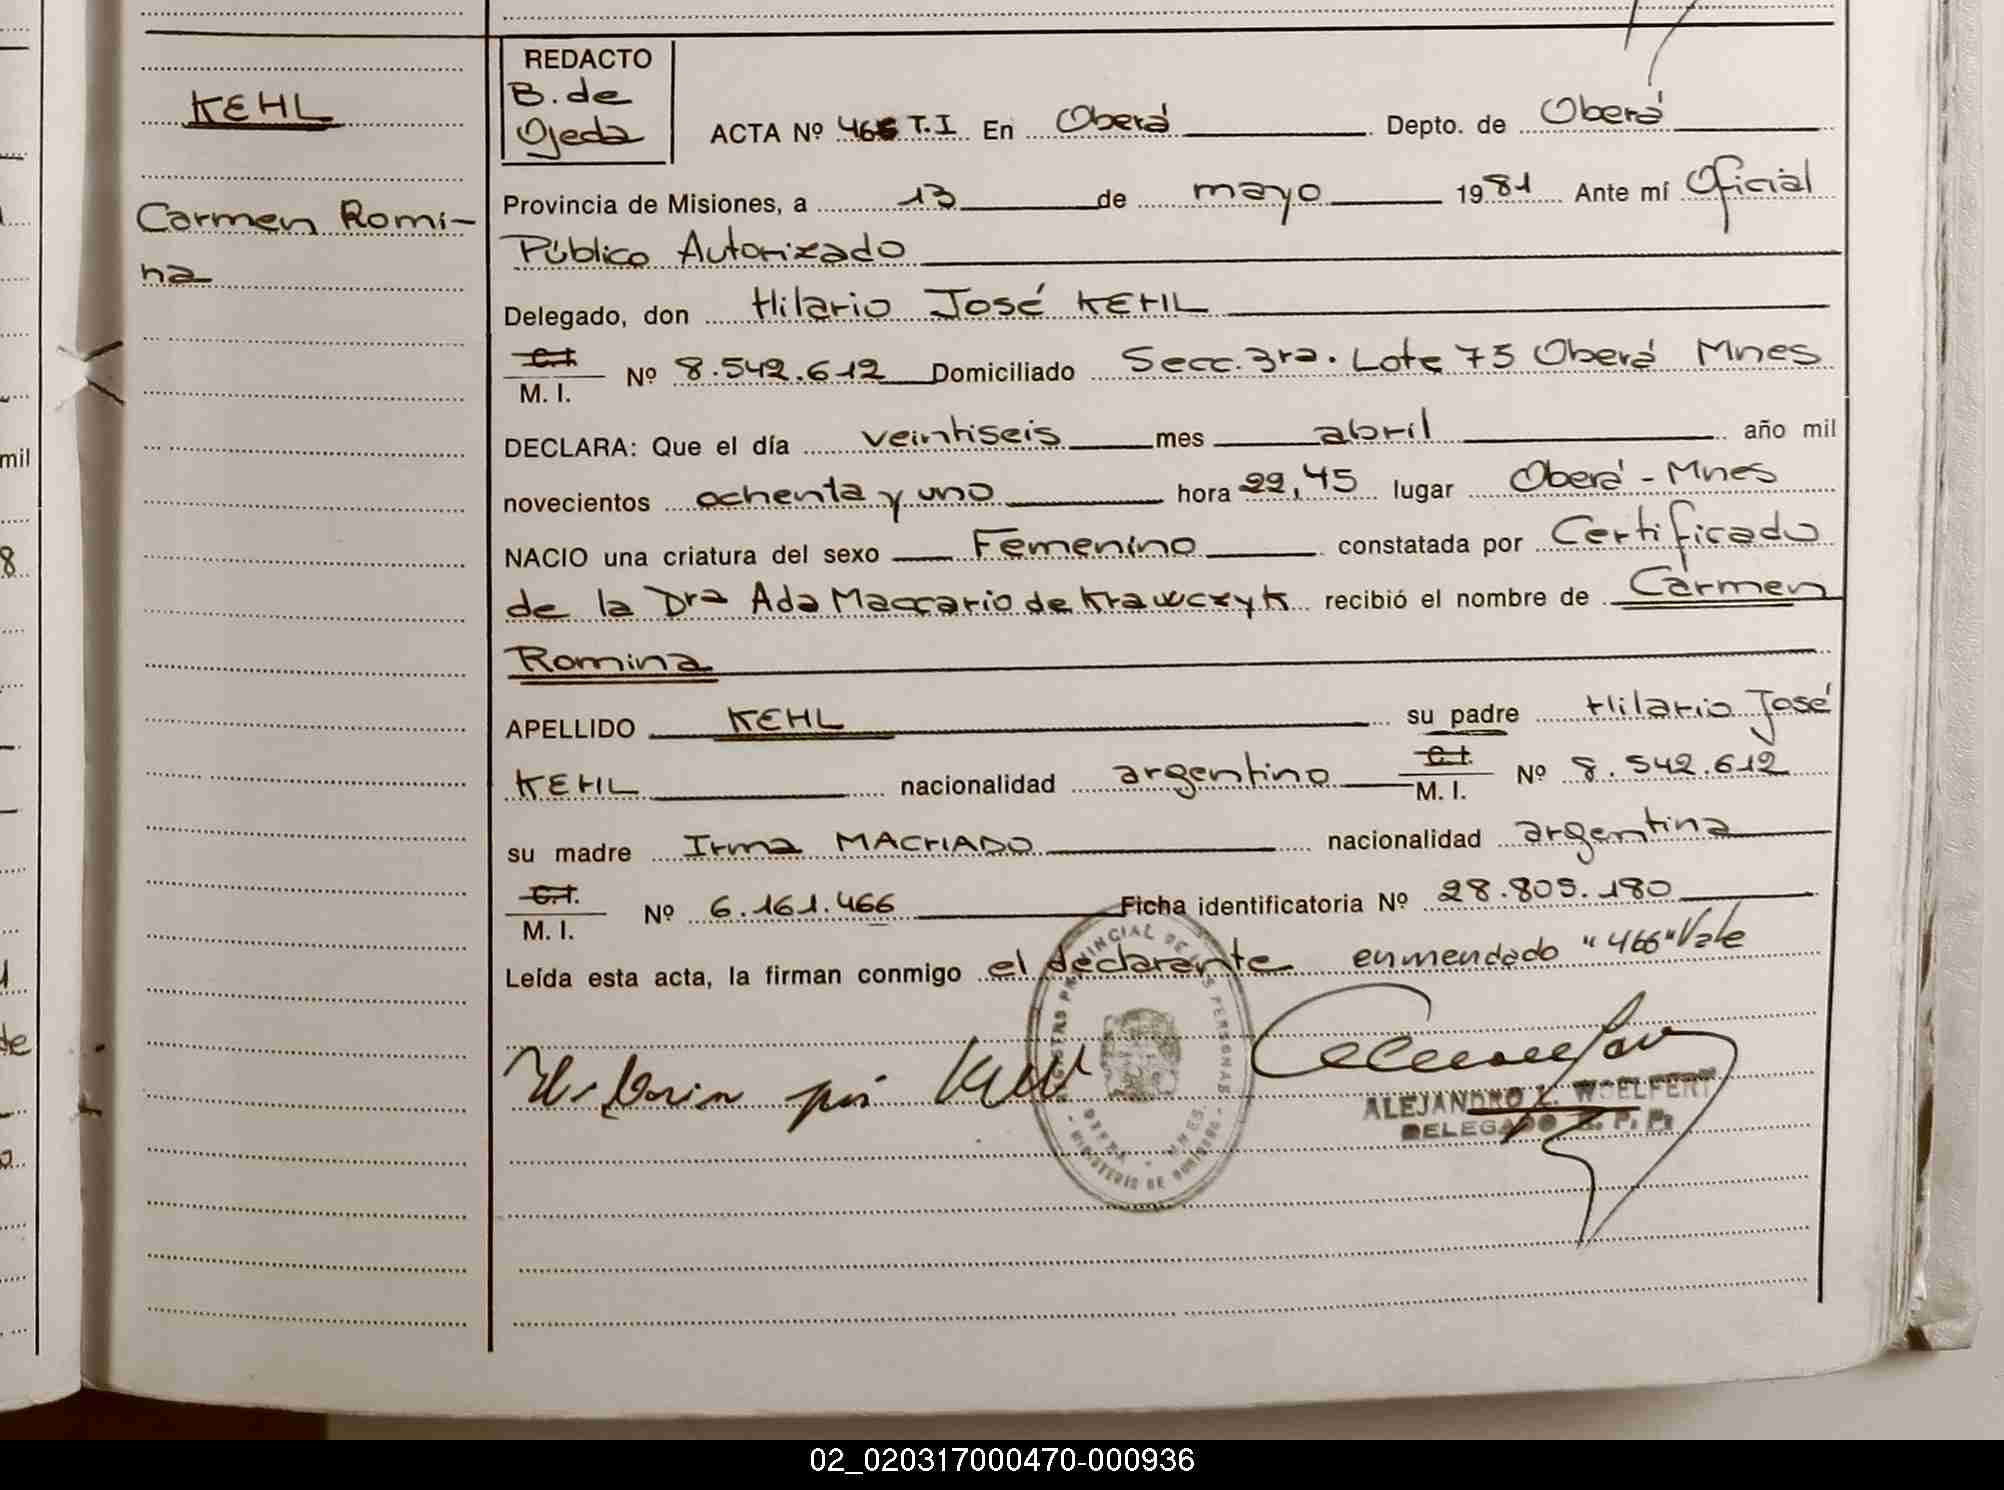 KEHL
Carmen Romi-
na
REDACTO
B. de
Ojeda
ACTA Nº 466 T.I En Oberá Depto. de Oberá
Provincia de Misiones, a 13 de mayo 1981 Ante mí Oficial
Público Autorizado
Delegado, don Hilario José KEHL
C.I.
M. I. Nº 8.542.612 Domiciliado Secc. 3ra. Lote 75 Oberá Mnes
DECLARA: Que el día veintiseis mes abril año mil
novecientos ochenta y uno hora 22,45 lugar Oberá - Mnes
NACIO una criatura del sexo Femenino constatada por Certificado
de la Dra Ada Maccario de Krawczyk recibió el nombre de Carmen
Romina
APELLIDO KEHL su padre Hilario José
KEHL nacionalidad argentino C.I. M. I. Nº 8.542.612
su madre Irma MACHADO nacionalidad argentina
C.I.
M. I. Nº 6.161.466 Ficha identificatoria Nº 28.805.180
Leída esta acta, la firman conmigo el declarante enmendado "466" Vale
ALEJANDRO L. WOELFERT
DELEGADO R. P. P.
mil
8
de
02_020317000470-000936